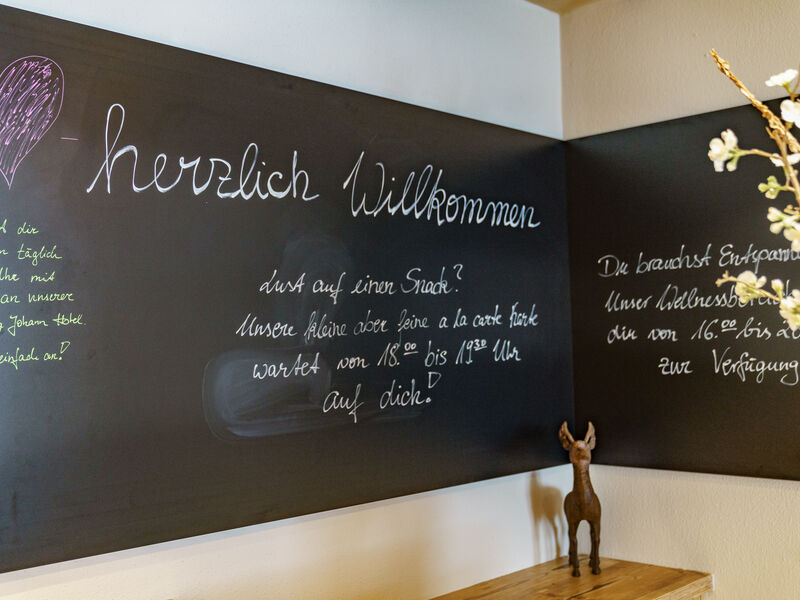 herzlich Willkommen
dir
täglich
Uhr mit
an unserer
Johann Hotel.
einfach an!
Lust auf einen Snack?
Unsere kleine aber feine a la carte Karte
wartet von 18.00 bis 19.30 Uhr
auf dich!
Du brauchst
Unser
dir von 16.00 bis
zur Verfügung